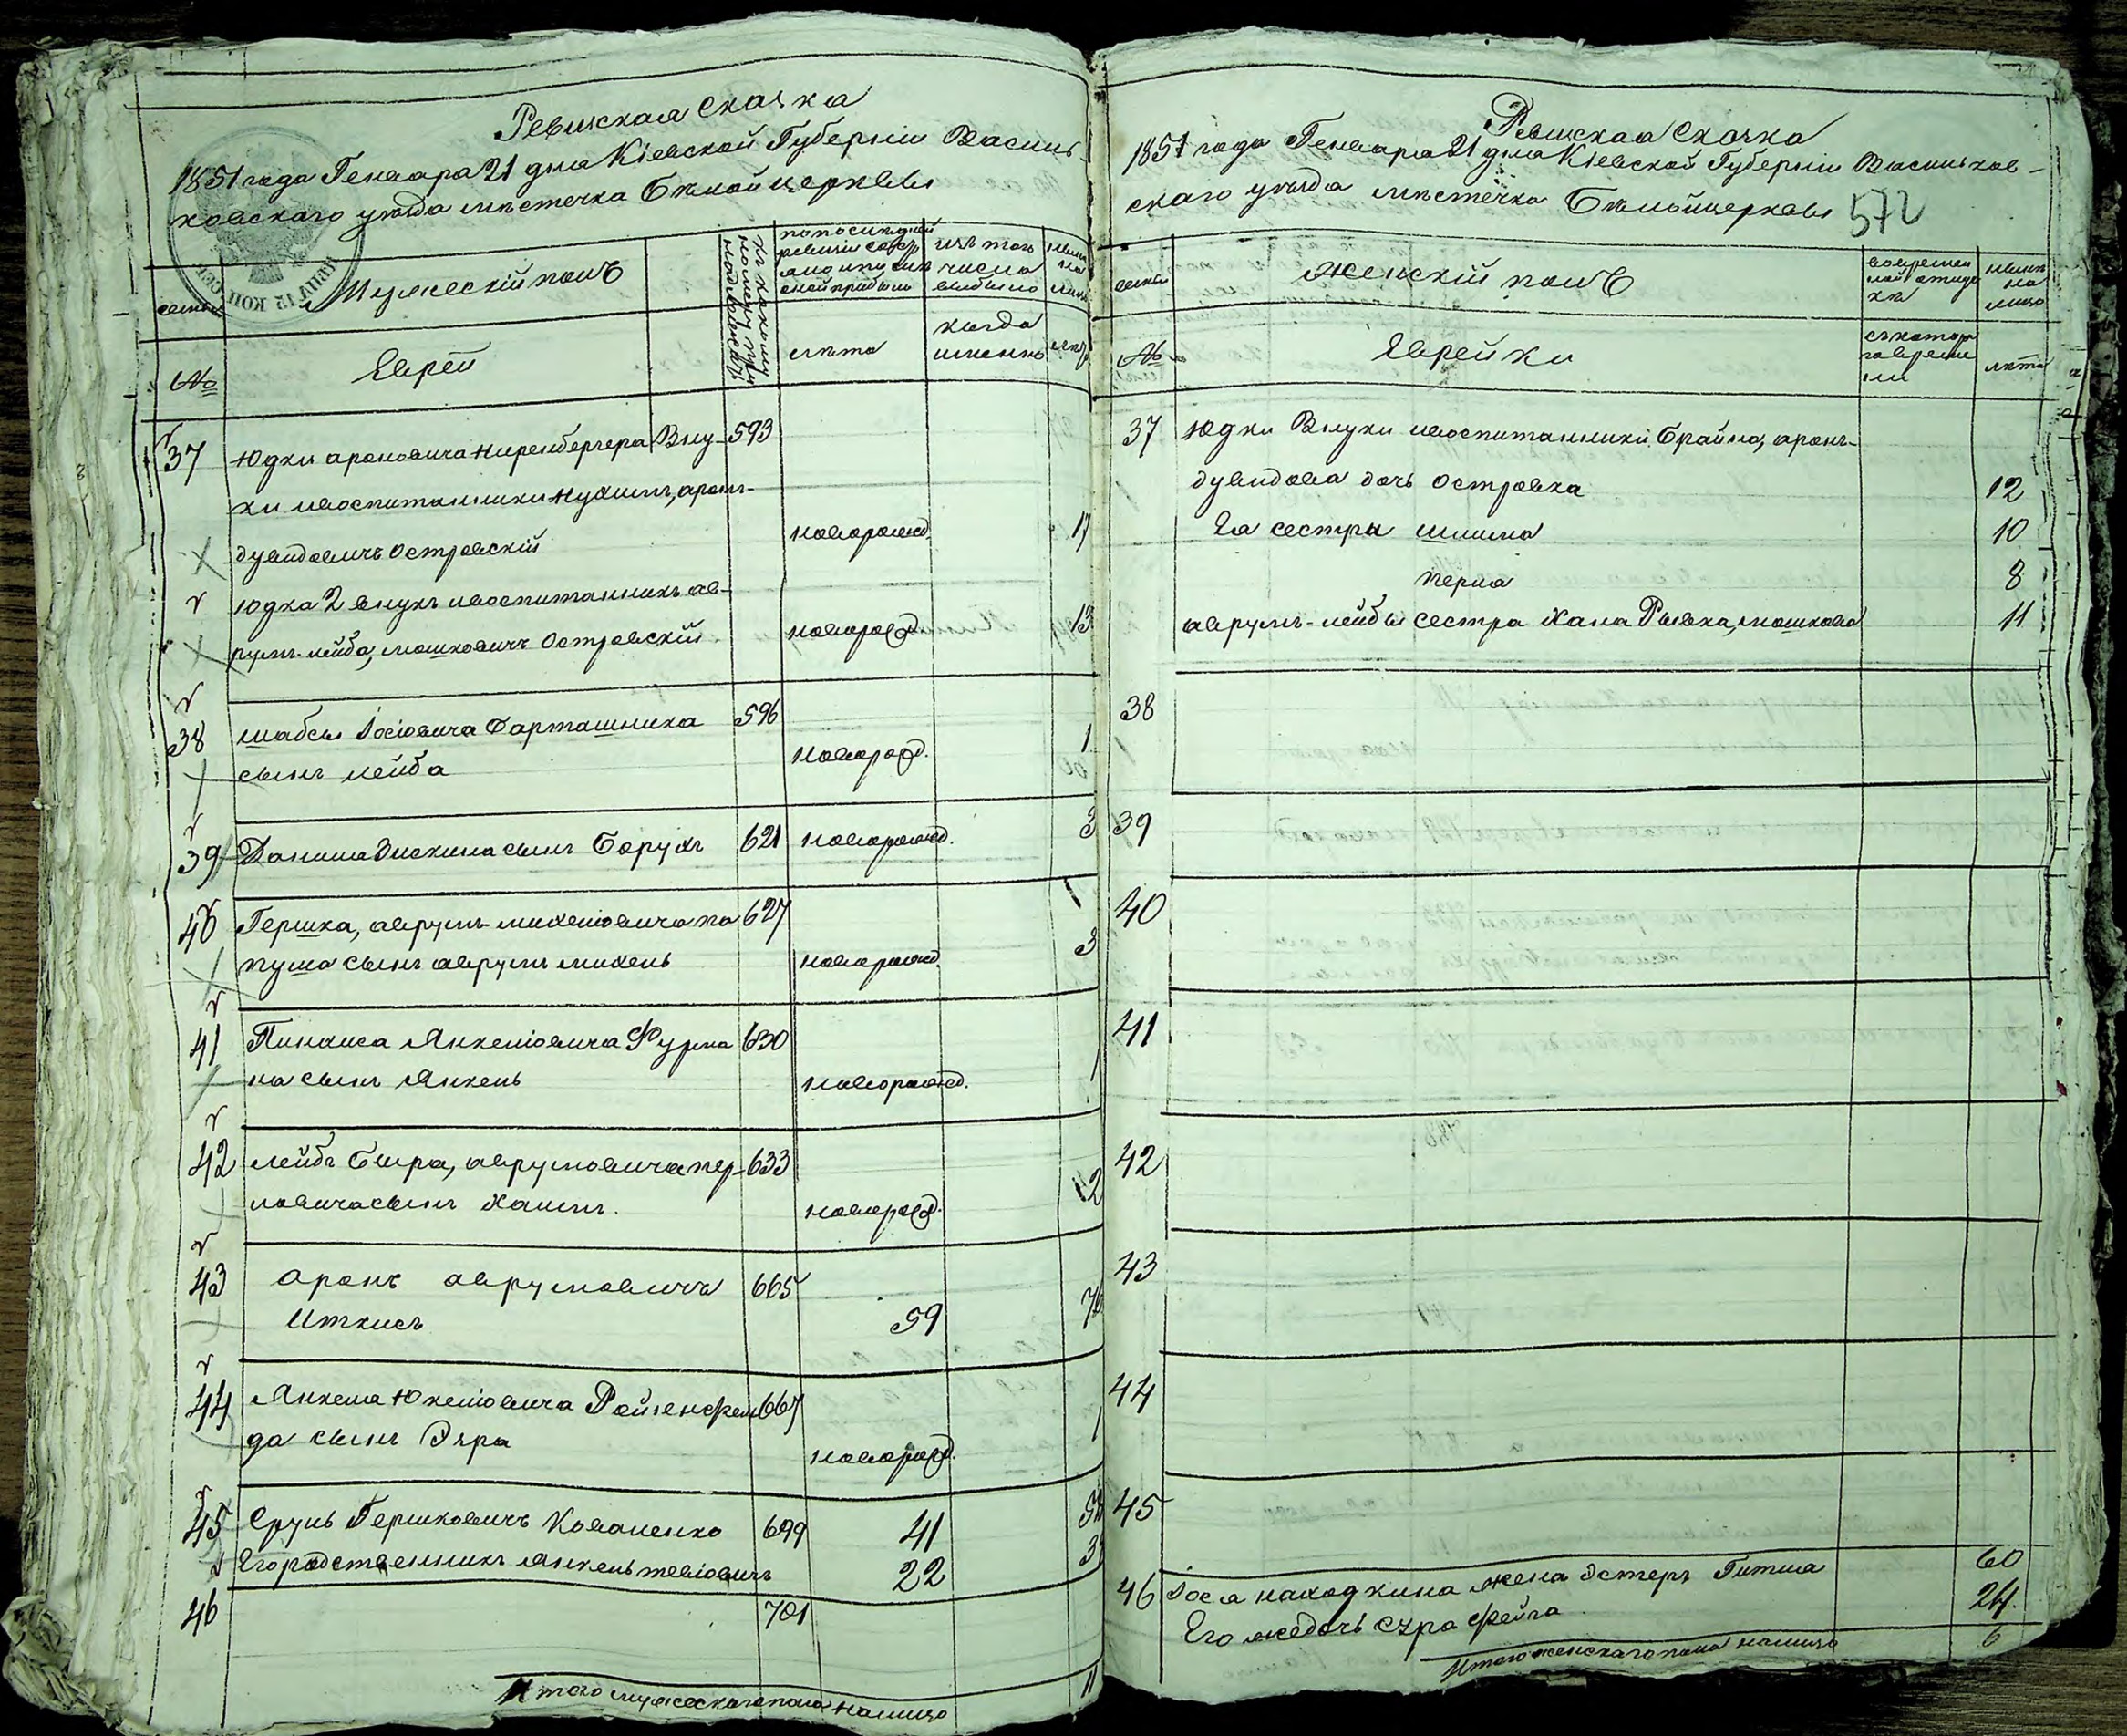 Ревижская Сказка
1851 года Генваря 21 дня Кіевской Губерніи Василь
ковскаго уѣзда мѣстечка Бѣлойцеркви
семьи
Мужескій полъ
по послѣдней
ревизіи состо
яло и послѣ
оной прибыло
изъ того
числа
выбыло
ныне
на
лицо
№
Еврей
лѣта
когда
именно
лѣта
37 Юдки Ароновича Ниренбергера Вну- 593
ки и воспитанники Нухимъ, аронъ-
дувидовичъ Островскій новорожд. 17
Юдка 2 внукъ и воспитанникъ ав-
румъ-лейба, мошковичъ Островскій новорожд. 13
38 шабсы Іосіовича Фарташника 596
сынъ лейба новорожд. 1
39 Данила Зискина сынъ Борухъ 621 новорожд. 3
40 Гершка, аврумъ-михеліовича па 627
пуша сынъ аврумъ михель новорожд. 3
41 Пинхаса Янкеліовича Фурма 630
на сынъ Янкель новорожд. 1
42 лейбъ Бера, аврумовича пер- 633
ловича сынъ Хаимъ. новорожд. 2
43 Аронъ аврумовичъ 665
Иткисъ 59 76
44 Янкеля Юкеліовича Розенфель 667
да сынъ Эзра новорожд. 1
45 Сруль Гершковичъ Коваленко 699 41 58
Его родственникъ Янкель тевіовичъ 22 3
46 701
Итого мужескаго пола налицо 11
Ревижская Сказка
1851 года Генваря 21 дня Кіевской Губерніи Васильков-
скаго уѣзда мѣстечка Бѣлойцеркви 572
семьи
Женскій полъ
во времен
ной отлуч
кѣ
нынѣ
на
лицо
№
Еврейки
съ котора
го време
ни
лѣта
37 Юдки Внуки и воспитанники Брайна, аронъ-
дувидова дочь Островка 12
Ея сестры шлима 10
перла 8
аврумъ-лейбы сестра Хана Рывка, мошкова 11
38
39
40
41
42
43
44
45
46 Іося находкина жена Эстеръ Гитля 60
Его же дочь сура фейга 24.
Итого женскаго пола налицо 6